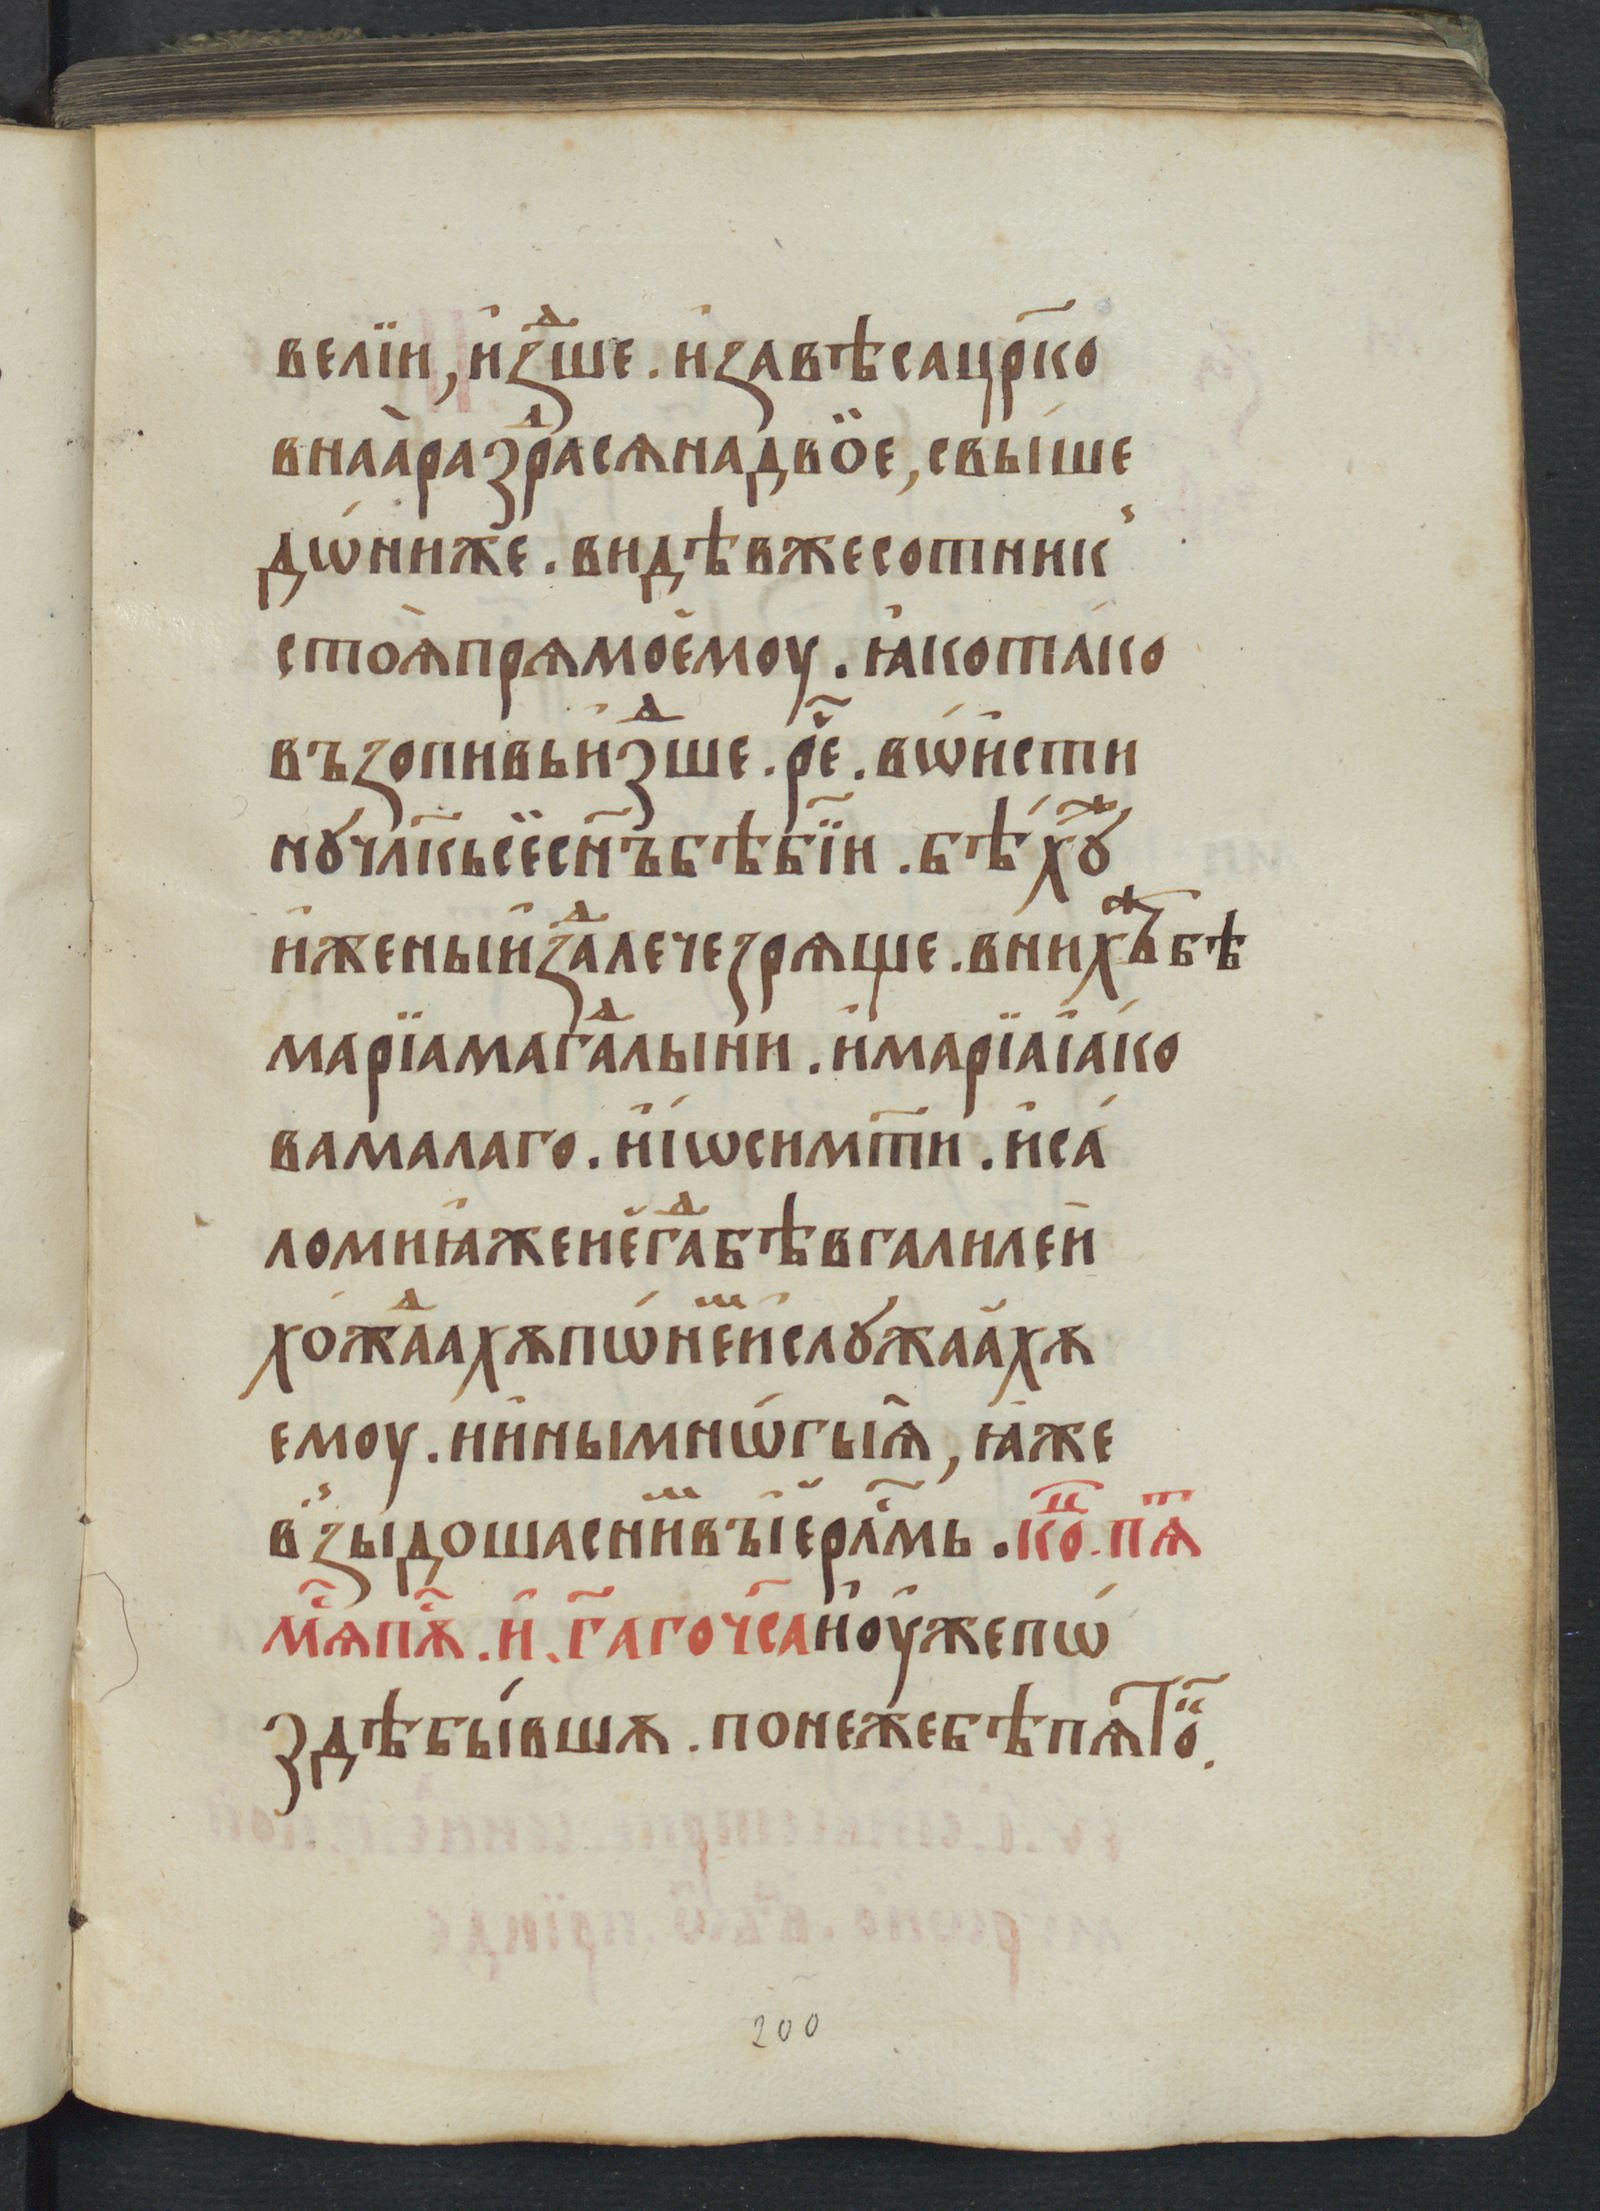 велїи, и҆зⷣше . и҆ завѣса цр҃ко
внаа̀ раз̾драⷣ сѧ на двӧе, свы́ше
дѡ́ ниже . видѣв же сотник̾
стоѧ̀ прѧмо е҆моу . ꙗ҆ко та́ко
възопивь и҆зⷣше . реⷱ҇ . вѡ́ и҆сти
нꙋ чл҃кь сїе сн҃ъ бѣ бж҃їи . бѣ́хꙋⷤ
и҆ жены и҆здⷣалече зрѧще . в нихъⷤ бѣ
марїа магдⷣалыни . и҆ марїа і҆а҆ко
ва малаго . и҆ і҆ѡ́сии мт҃и . и҆ са́
ломиꙗ҆ же и҆ е҆гдⷣа бѣ в галилеи҆
хо́ждⷣаахѫ пѡ́ не́мⷨ и҆ слꙋжаа҆хѫ
емоу . и и҆ны мнѡ́гыѧ҆, ꙗ҆же
в̾зыдоша с ниⷨ въ і҆ерⷭ҇лмь . кⷪ҇ц . пѧⷮ
мⷭ҇ѧ пⷭ҇ѧ . и҆ . г҃аго чⷭ҇са и҆ оу҆же пѡ́
здѣ бы́вшѫ . понеже бѣ пѧто́ⷦ.
200